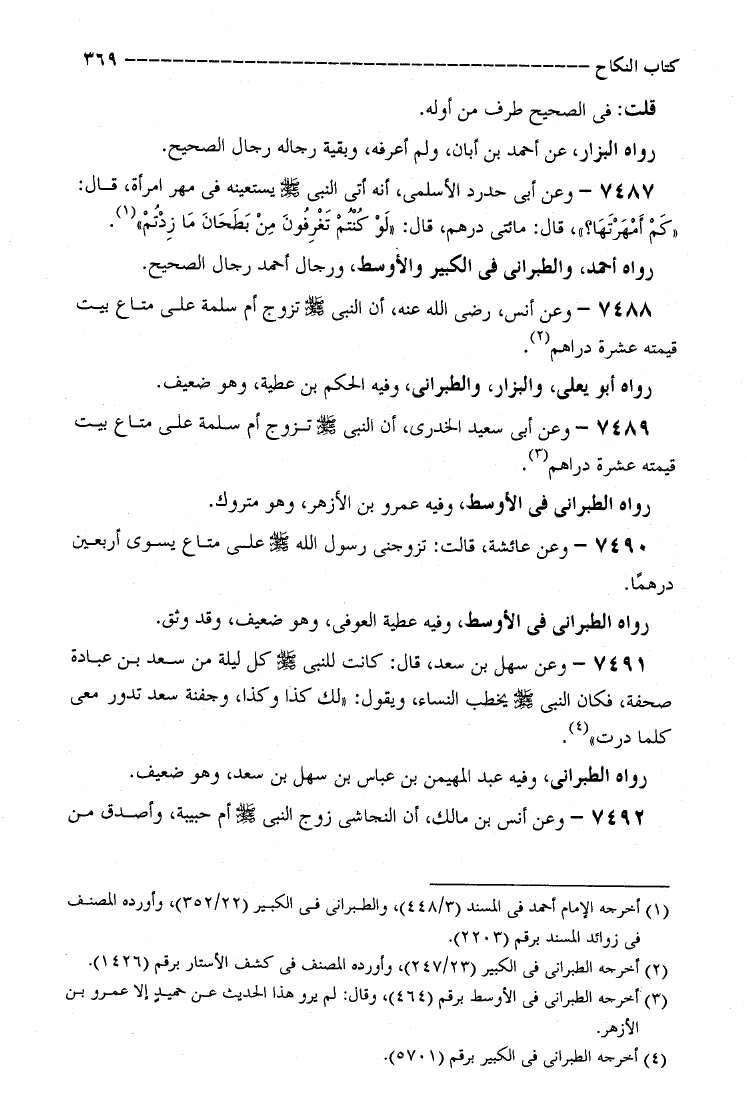 كتاب النكاح ------------------------------------- ٣٦٩
قلت: فى الصحيح طرف من أوله.
رواه البزار، عن أحمد بن أبان، ولم أعرفه، وبقية رجاله رجال الصحيح.
٧٤٨٧ – وعن أبى حدرد الأسلمى، أنه أتى النبى ﷺ يستعينه فى مهر امرأة، قال:
«كَمْ أَمْهَرْتَهَا؟»، قال: مائتى درهم، قال: «لَوْ كُنْتُمْ تَغْرِفُونَ مِنْ بَطَحَانَ مَا زِدْتُمْ»(١).
رواه أحمد، والطبرانى فى الكبير والأوسط، ورجال أحمد رجال الصحيح.
٧٤٨٨ – وعن أنس، رضى الله عنه، أن النبى ﷺ تزوج أم سلمة على متاع بيت
قيمته عشرة دراهم(٢).
رواه أبو يعلى، والبزار، والطبرانى، وفيه الحكم بن عطية، وهو ضعيف.
٧٤٨٩ – وعن أبى سعيد الخدرى، أن النبى ﷺ تزوج أم سلمة على متاع بيت
قيمته عشرة دراهم(٣).
رواه الطبرانى فى الأوسط، وفيه عمرو بن الأزهر، وهو متروك.
٧٤٩٠ – وعن عائشة، قالت: تزوجنى رسول الله ﷺ على متاع يسوى أربعين
درهمًا.
رواه الطبرانى فى الأوسط، وفيه عطية العوفى، وهو ضعيف، وقد وثق.
٧٤٩١ – وعن سهل بن سعد، قال: كانت للنبى ﷺ كل ليلة من سعد بن عبادة
صحفة، فكان النبى ﷺ يخطب النساء، ويقول: «لك كذا وكذا، وجفنة سعد تدور معى
كلما درت»(٤).
رواه الطبرانى، وفيه عبد المهيمن بن عباس بن سهل بن سعد، وهو ضعيف.
٧٤٩٢ – وعن أنس بن مالك، أن النجاشى زوج النبى ﷺ أم حبيبة، وأصدق من
(١) أخرجه الإمام أحمد فى المسند (٤٤٨/٣)، والطبرانى فى الكبير (٣٥٢/٢٢)، وأورده المصنف
فى زوائد المسند برقم (٢٢٠٣).
(٢) أخرجه الطبرانى فى الكبير (٢٤٧/٢٣)، وأورده المصنف فى كشف الأستار برقم (١٤٢٦).
(٣) أخرجه الطبرانى فى الأوسط برقم (٤٦٤)، وقال: لم يرو هذا الحديث عن حميدٍ إلا عمرو بن
الأزهر.
(٤) أخرجه الطبرانى فى الكبير برقم (٥٧٠١).